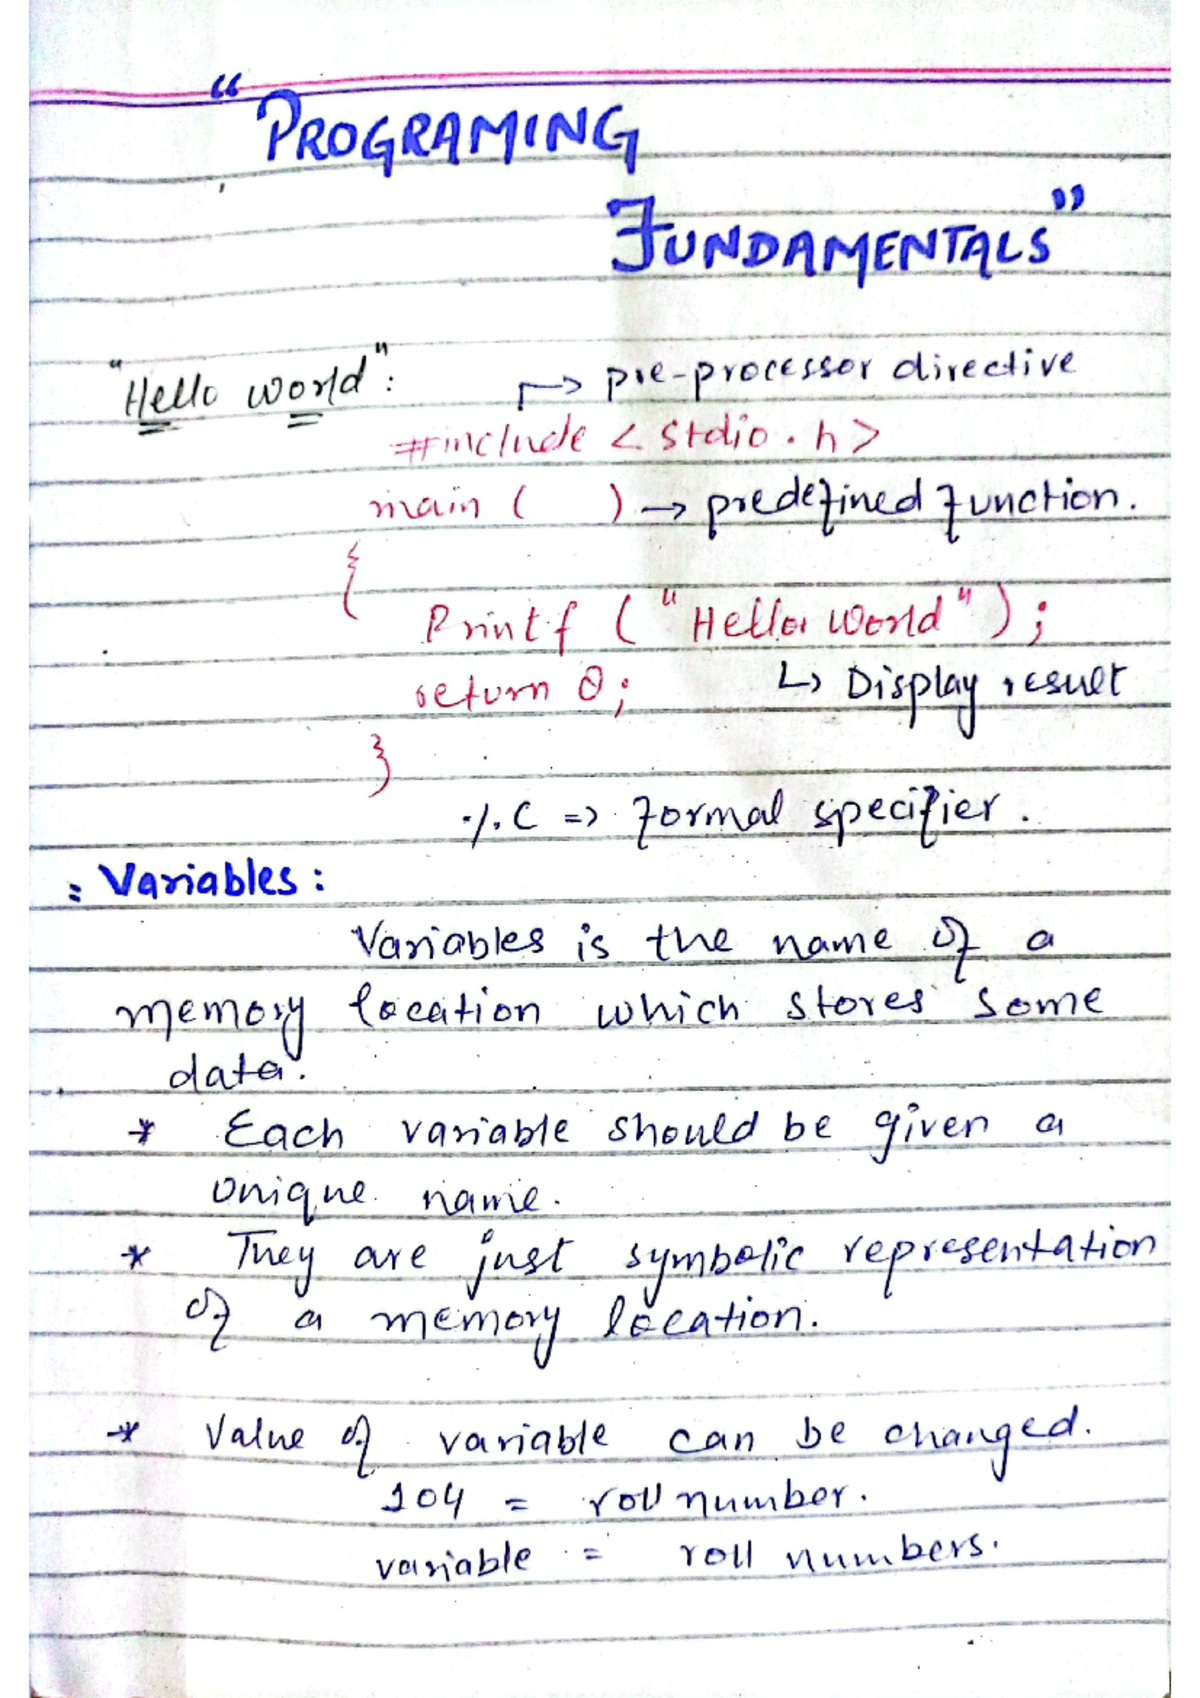 “PROGRAMING
FUNDAMENTALS”
"Hello world": ↱ pre-processor directive
#include < stdio.h>
main ( ) → predefined function.
{
Printf ("Hello world");
return 0; ↳ Display result
}
%c => formal specifier.
: Variables:
Variables is the name of a
memory location which stores some
data.
* Each variable should be given a
unique name.
* They are just symbolic representation
of a memory location.
* Value of variable can be changed.
104 = roll number.
variable = roll numbers.